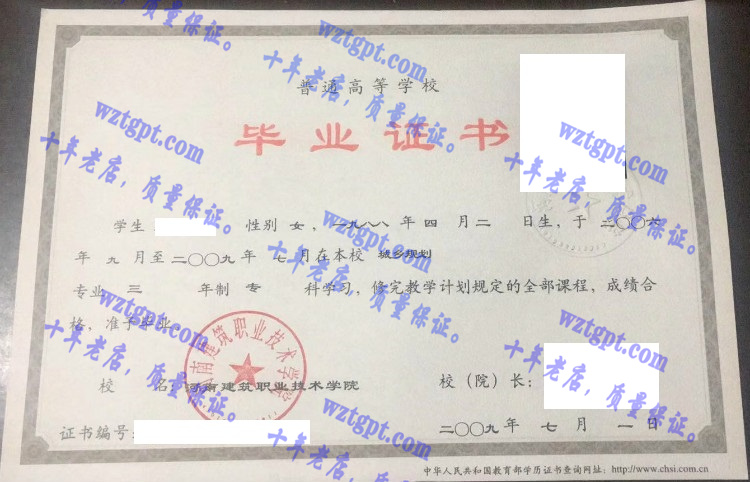 普通高等学校
毕业证书
学生 性别 女，一九八八 年 四 月 二 日生，于 二〇〇六
年 九 月至 二〇〇九 年 七 月在本校 城乡规划
专业 三 年制 专 科学习，修完教学计划规定的全部课程，成绩合
格，准予毕业。
河南建筑职业技术学院
校 名：河南建筑职业技术学院
校（院）长：
证书编号：
二〇〇九 年 七 月 一 日
中华人民共和国教育部学历证书查询网址：http://www.chsi.com.cn
wztgpt.com
十年老店，质量保证。
wztgpt.com
十年老店，质量保证。
wztgpt.com
十年老店，质量保证。
wztgpt.com
十年老店，质量保证。
wztgpt.com
十年老店，质量保证。
wztgpt.com
十年老店，质量保证。
wztgpt.com
十年老店，质量保证。
wztgpt.com
十年老店，质量保证。